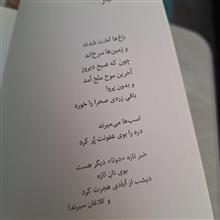 باغ‌ها لخت شدند
و زمین‌ها سرخ‌اند
چون که صبح دیروز
آخرین موج ملخ آمد
و بدون پروا
باقیِ زردیِ صحرا را خورد
اسب‌ها می‌میرند
دره را بوی عفونت پُر کرد
خبر تازه «دوتا» دیگر هست
بوی نان تازه
دیشب از آبادی هجرت کرد
و کلاغان سیرند؟